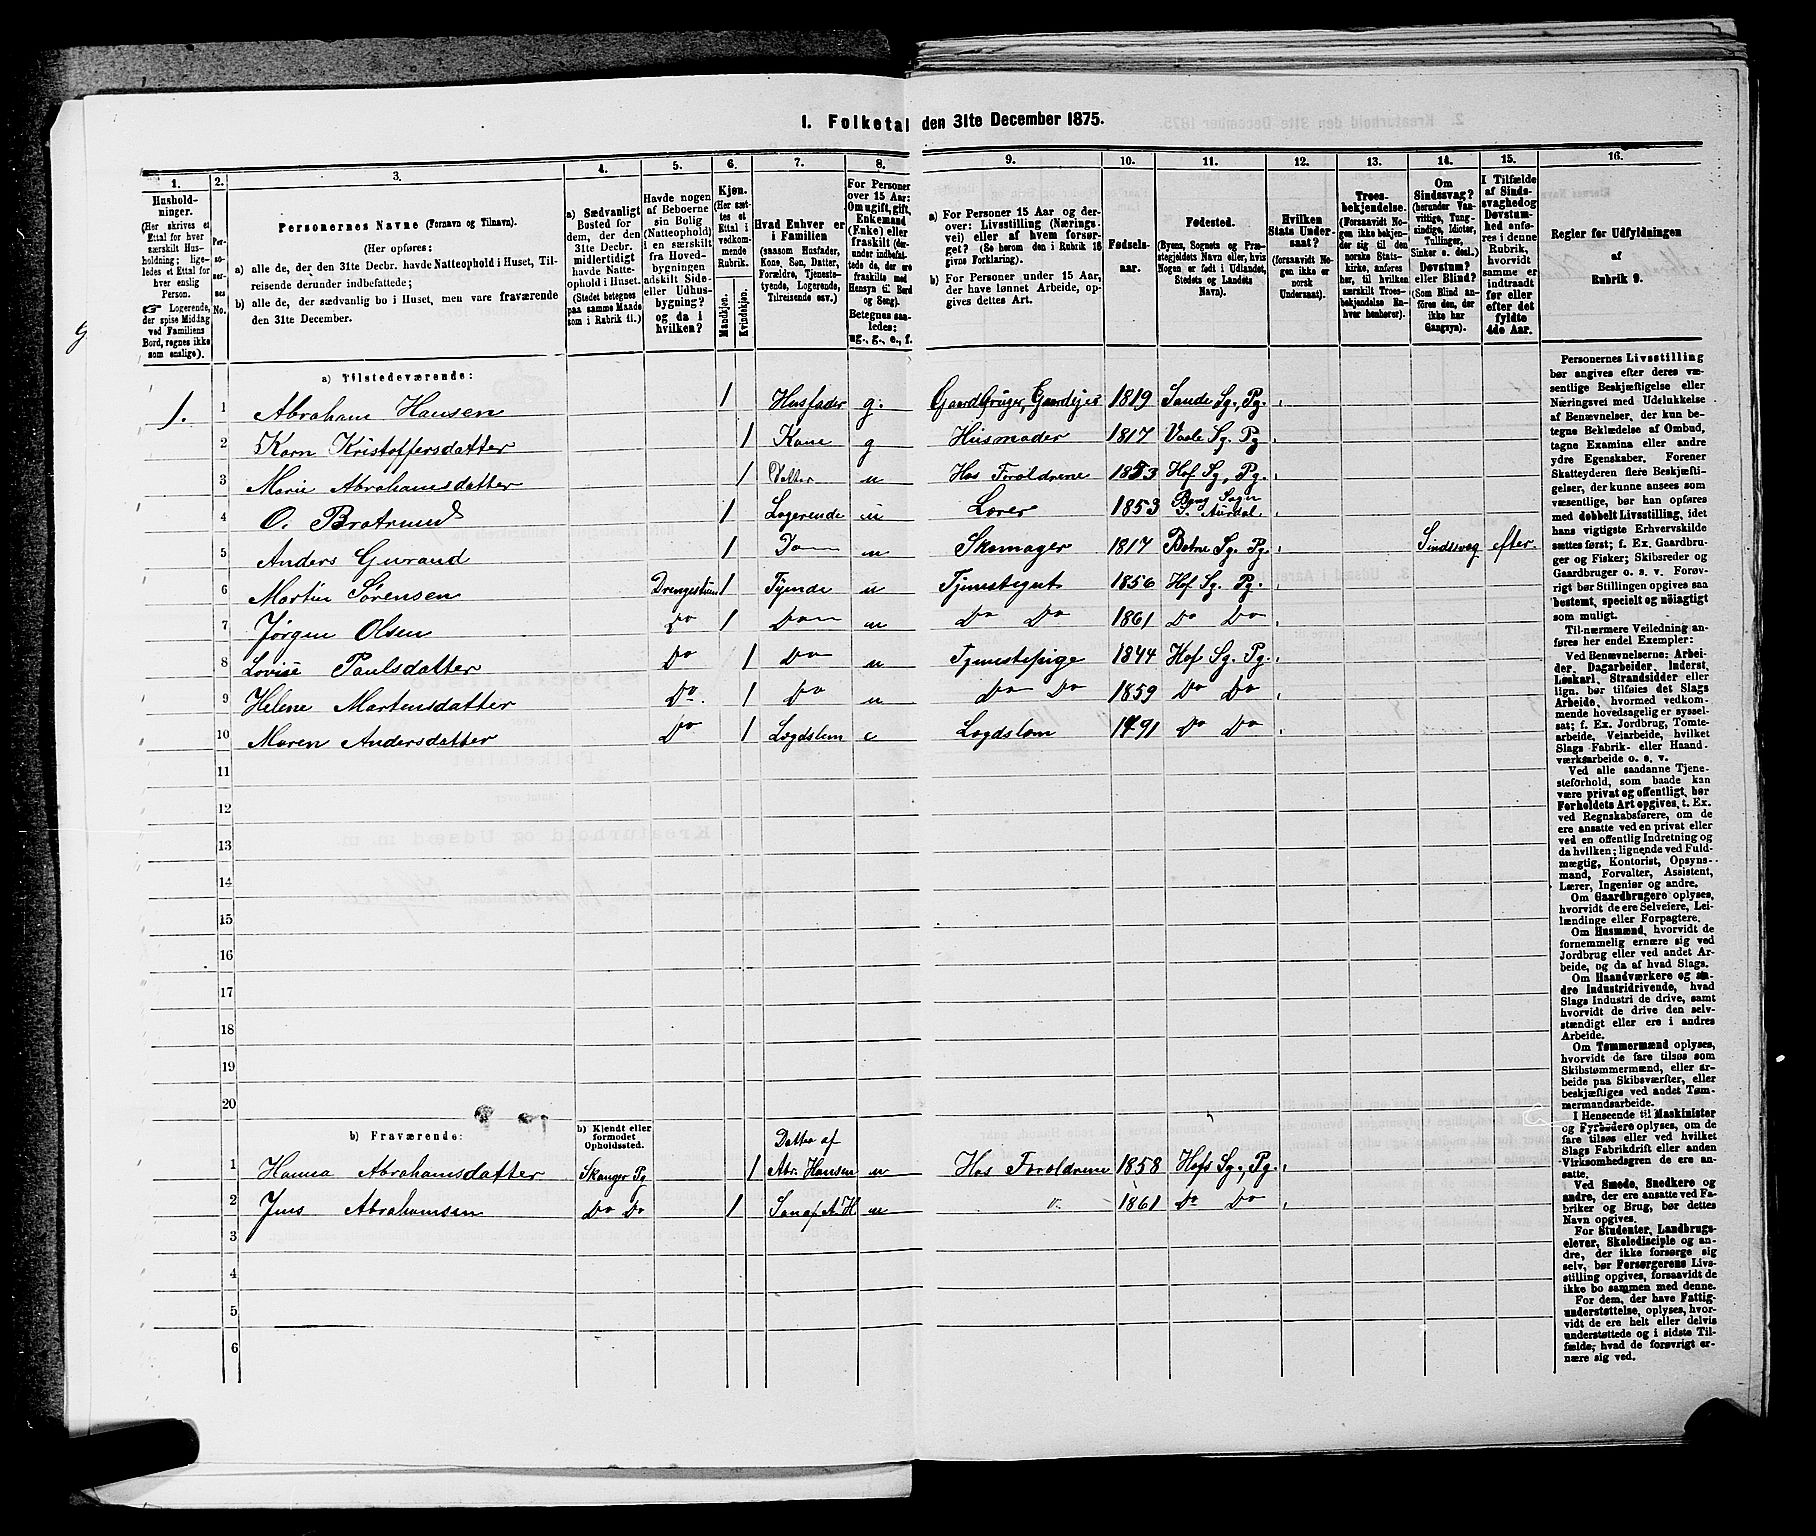 1. Folketal den 31te December 1875.
1. 2. 3. 4. 5. 6. 7. 8. 9. 10. 11. 12. 13. 14. 15. 16.
Husholdninger.
(Her skrives et Ettal for hver særskilt Husholdning; ligeledes et Ettal for hver enslig Person.
Logerende, der spise Middag ved Familiens Bord, regnes ikke som enslige).
Personernes No.
Personernes Navne (Fornavn og Tilnavn).
(Her opføres:
a) alle de, der den 31te Decbr. havde Natteophold i Huset, Tilreisende derunder indbefattede;
b) alle de, der sædvanlig bo i Huset, men vare fraværende den 31te December.
a) Sædvanligt Bosted for dem, der den 31te Decbr. midlertidigt havde Natteophold i Huset.
(Stedet betegnes paa samme Maade som i Rubrik 11.)
Havde nogen af Beboerne sin Bolig (Natteophold) i en særskilt fra Hovedbygningen adskilt Side- eller Udhusbygning? og da i hvilken?
Kjøn.
(Her sættes et Ettal i vedkommende Rubrik.
Mandkjøn.
Kvindekjøn.
Hvad Enhver er i Familien
(saasom Husfader, Kone, Søn, Datter, Forældre, Tjenestetyende, Logerende, Tilreisende osv.)
For Personer over 15 Aar: Om ugift, gift, Enkemand (Enke) eller fraskilt (derunder indbefattede de, der ere fraskilte med Hensyn til Bord og Seng).
Betegnes saaledes: ug., g., e., f.
a) For Personer 15 Aar og derover: Livsstilling (Næringsvei) eller af hvem forsørget? (Se herom den i Rubrik 16 givne Forklaring).
b) For Personer under 15 Aar, der have lønnet Arbeide, opgives dettes Art.
Fødselsaar.
Fødested.
(Byens, Sognets og Præstegjeldets Navn eller, hvis Nogen er født i Udlandet, Stedets og Landets Navn).
Hvilken Stats Undersaat?
(forsaavidt Nogen ikke er norsk Undersaat).
Troesbekjendelse.
(Forsaavidt Nogen ikke bekjender sig til den norske Statskirke, anføres her, til hvilken særskilt Troesbekjendelse Enhver henhører).
Om Sindssvag?
(herunder Vanvittige, Tungsindige, Idioter, Tullinger, Sinker o. desl.)
Døvstum? eller Blind?
(Som Blind anføres den, der ikke har Gangsyn).
I Tilfælde af Sindssvaghed og Døvstumhed anføres i denne Rubrik, hvorvidt samme er indtraadt før eller efter det fyldte 4de Aar.
Regler for Udfyldningen
af
Rubrik 9.
a) Tilstedeværende:
1. 1 Abraham Hansen 1 Husfader g. Gaardbruger, Gaardejer 1819 Sande Sg., Pg.
2 Karn Kristoffersdatter 1 Kone g Husmoder 1817 Vaale Sg. Pg
3 Marie Abrahamsdatter 1 Datter u Hos Foroldrene 1853 Hof Sg., Pg.
4 O. Bratrud 1 Logerende u Lærer 1853 Bang Sogn S. Aurdal.
5 Anders Gurand 1 Do u Skomager 1817 Botne Sg. Pg. Sindssvag efter.
6 Martin Sørensen Drengestuen 1 Tyende u Tjenestegut 1856 Hof Sg. Pg.
7 Jørgen Olsen Do 1 Do u Do Do 1861 Do Do
8 Lovise Paulsdatter Do 1 Do u Tjenestepige 1844 Hof Sg. Pg.
9 Helene Martinsdatter Do. 1 Do u Do Do 1859 Do Do
10 Maren Andersdatter Do 1 Lægdslem e Lægdslem 1791 Do Do
11
12
13
14
15
16
17
18
19
20
b) Fraværende:
b) Kjendt eller formodet Opholdssted.
1 Hanna Abrahamsdatter Skanger Pg 1 Datter af Abr. Hansen u Hos Foroldrene 1858 Hofs Sg., Pg.
2 Jens Abrahamsen Do Do 1 Søn af A. H u 1861 Do Do
3
4
5
6
Personernes Livsstilling bør angives efter deres væsentlige Beskjæftigelse eller Næringsvei med Udelukkelse af Benævnelser, der kun betegne Beklædelse af Ombud, tagne Examina eller andre ydre Egenskaber. Forener Skatteyderen flere Beskjæftigelser, der kunne ansees som væsentlige, bør han opføres med dobbelt Livsstilling, idet hans vigtigste Erhvervskilde sættes først; f. Ex. Gaardbruger og Fisker; Skibsreder og Gaardbruger o. s. v. Forøvrigt bør Stillingen opgives saa bestemt, specielt og nøiagtigt som muligt.
Til nærmere Veiledning anføres her endel Exempler:
Ved Benævnelserne: Arbeider, Dagarbeider, Inderst, Løskarl, Strandsidder eller lign. bør tilføies det Slags Arbeide, hvormed vedkommende hovedsagelig er sysselsat; f. Ex. Jordbrug, Tomtearbeide, Veiarbeide, hvilket Slags Fabrik- eller Haandværksarbeide o. s. v.
Ved alle saadanne Tjenesteforhold, som baade kan være privat og offentligt, bør Forholdets Art opgives, t. Ex. ved Regnskabsførere, om de ere ansatte ved en privat eller ved en offentlig Indretning og da hvilken; lignende ved Fuldmægtig, Kontorist, Opsynsmand, Forvalter, Assistent, Lærer, Ingeniør og andre.
Om Gaardbrugere oplyses, hvorvidt de ere Selveiere, Leilændinge eller Forpagtere.
Om Husmænd, hvorvidt de fornemmelig ernære sig ved Jordbrug eller ved andet Arbeide, og da af hvad Slags.
Om Haandværkere og andre Industridrivende, hvad Slags Industri de drive, samt hvorvidt de drive den selvstændigt eller ere i andres Arbeide.
Om Tømmermænd oplyses, hvorvidt de fare tilsøs som Skibstømmermænd, eller arbeide paa Skibsværfter, eller beskjæftiges ved andet Tømmermandsarbeide.
I Henseende til Maskinister og Fyrbødere oplyses, om de fare tilsøs eller ved hvilket Slags Fabrikdrift eller anden Virksomhedsgren de ere ansatte.
Ved Smede, Snedkere og andre, der ere ansatte ved Fabriker og Brug, bør dettes Navn opgives.
For Studenter, Landbrugselever, Skoledisciple og andre, der ikke forsørge sig selv, bør Forsørgerens Livsstilling opgives, forsaavidt de ikke bo sammen med denne.
For dem, der have Fattigunderstøttelse, oplyses, hvorvidt de ere helt eller delvis understøttede og i sidste Tilfælde, hvad de forøvrigt ernære sig ved.